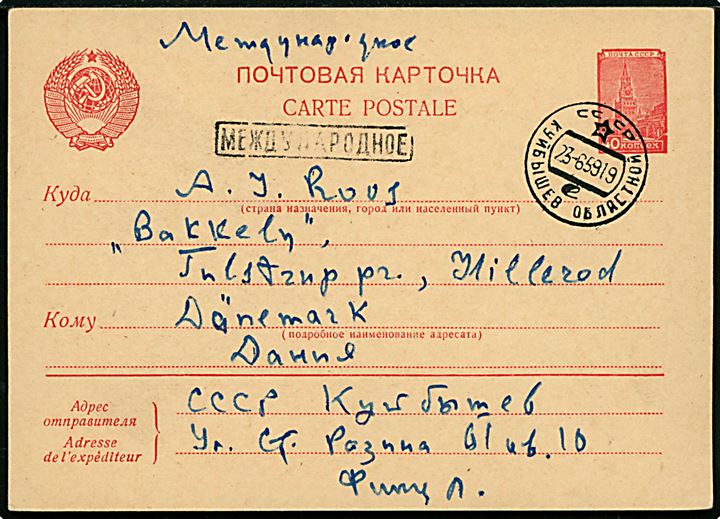 Международное
ПОЧТА СССР
ПОЧТОВАЯ КАРТОЧКА
CARTE POSTALE
КОПЕЕК
МЕЖДУНАРОДНОЕ
СССР
23-6-59 19
КУЙБЫШЕВ ОБЛАСТНОЙ
Куда A. J. Roos
(страна назначения, город или населенный пункт)
„Bakkely",
Tulstrup pr., Hillerod
Кому Dänemark
(подробное наименование адресата)
Дания
Адрес отправителя
Adresse de l'expéditeur
СССР Куйбышев
Ул. Ст. Разина 61 кв. 10